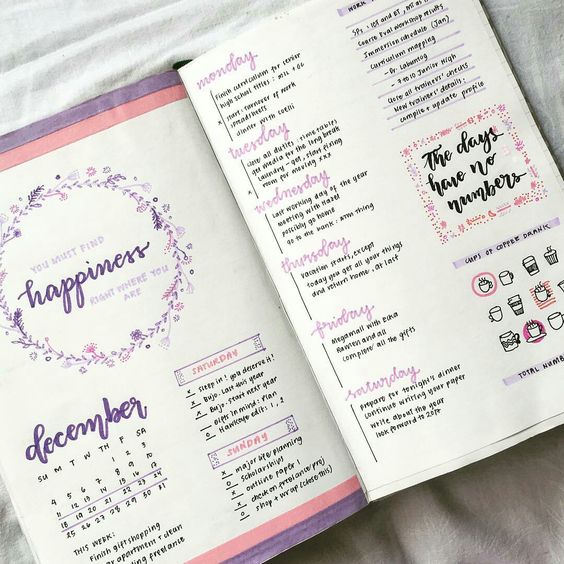 YOU MUST FIND
happiness
RIGHT WHERE YOU
ARE
december
SU M T W TH F SA
1 2 3
4 5 6 7 8 9 10
11 12 13 14 15 16 17
18 19 20 21 22 23 24
25 26 27 28 29 30 31
THIS WEEK:
Finish gift shopping
apartment + clean
freelance
SATURDAY
x Sleep in! you deserve it!
x BuJo: Last this year
x BuJo: Start next year
o Gifts in mind: Plan
o Hawkeye edit: 1, 2
SUNDAY
x major life planning
o scholarships
x outline paper 1
x check on freelance proj
o shop + wrap (close this)
monday
Finish curriculum for senior
high school titles: MIL + CC
x start: turnover of work
spreadsheets
dinner with
tuesday
close all duties: time tables
get media for the long break
Laundry - get, start fixing
room for moving xxx
wednesday
Last working day of the year
meeting with Hazel
possibly go home
go to the bank: ATM thing
thursday
Vacation starts, except
today you get all your things
and return home, at last
friday
Megamall with Eika
Ramen and all
complete all the gifts
saturday
prepare for tonight's dinner
continue writing your paper
write about the year
look forward to 2017
WORK
SPs: IGT and ET,
Course Eval Workshop results
Immersion schedule (Jan)
Curriculum mapping
- Dr Labuntog
7 to 10 Junior High
Close all trainers' checks
New trainer: details:
compile + update profile
The days
have no
numbers
CUPS OF COFFEE DRANK
TOTAL